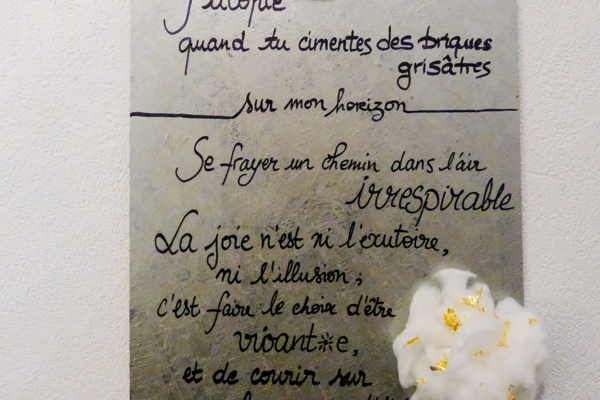 quand tu cimentes des briques
grisâtres
sur mon horizon
Se frayer un chemin dans l'air
irrespirable
La joie n'est ni l'exutoire,
ni l'illusion ;
c'est faire le choix d'être
vivant*e,
et de courir sur